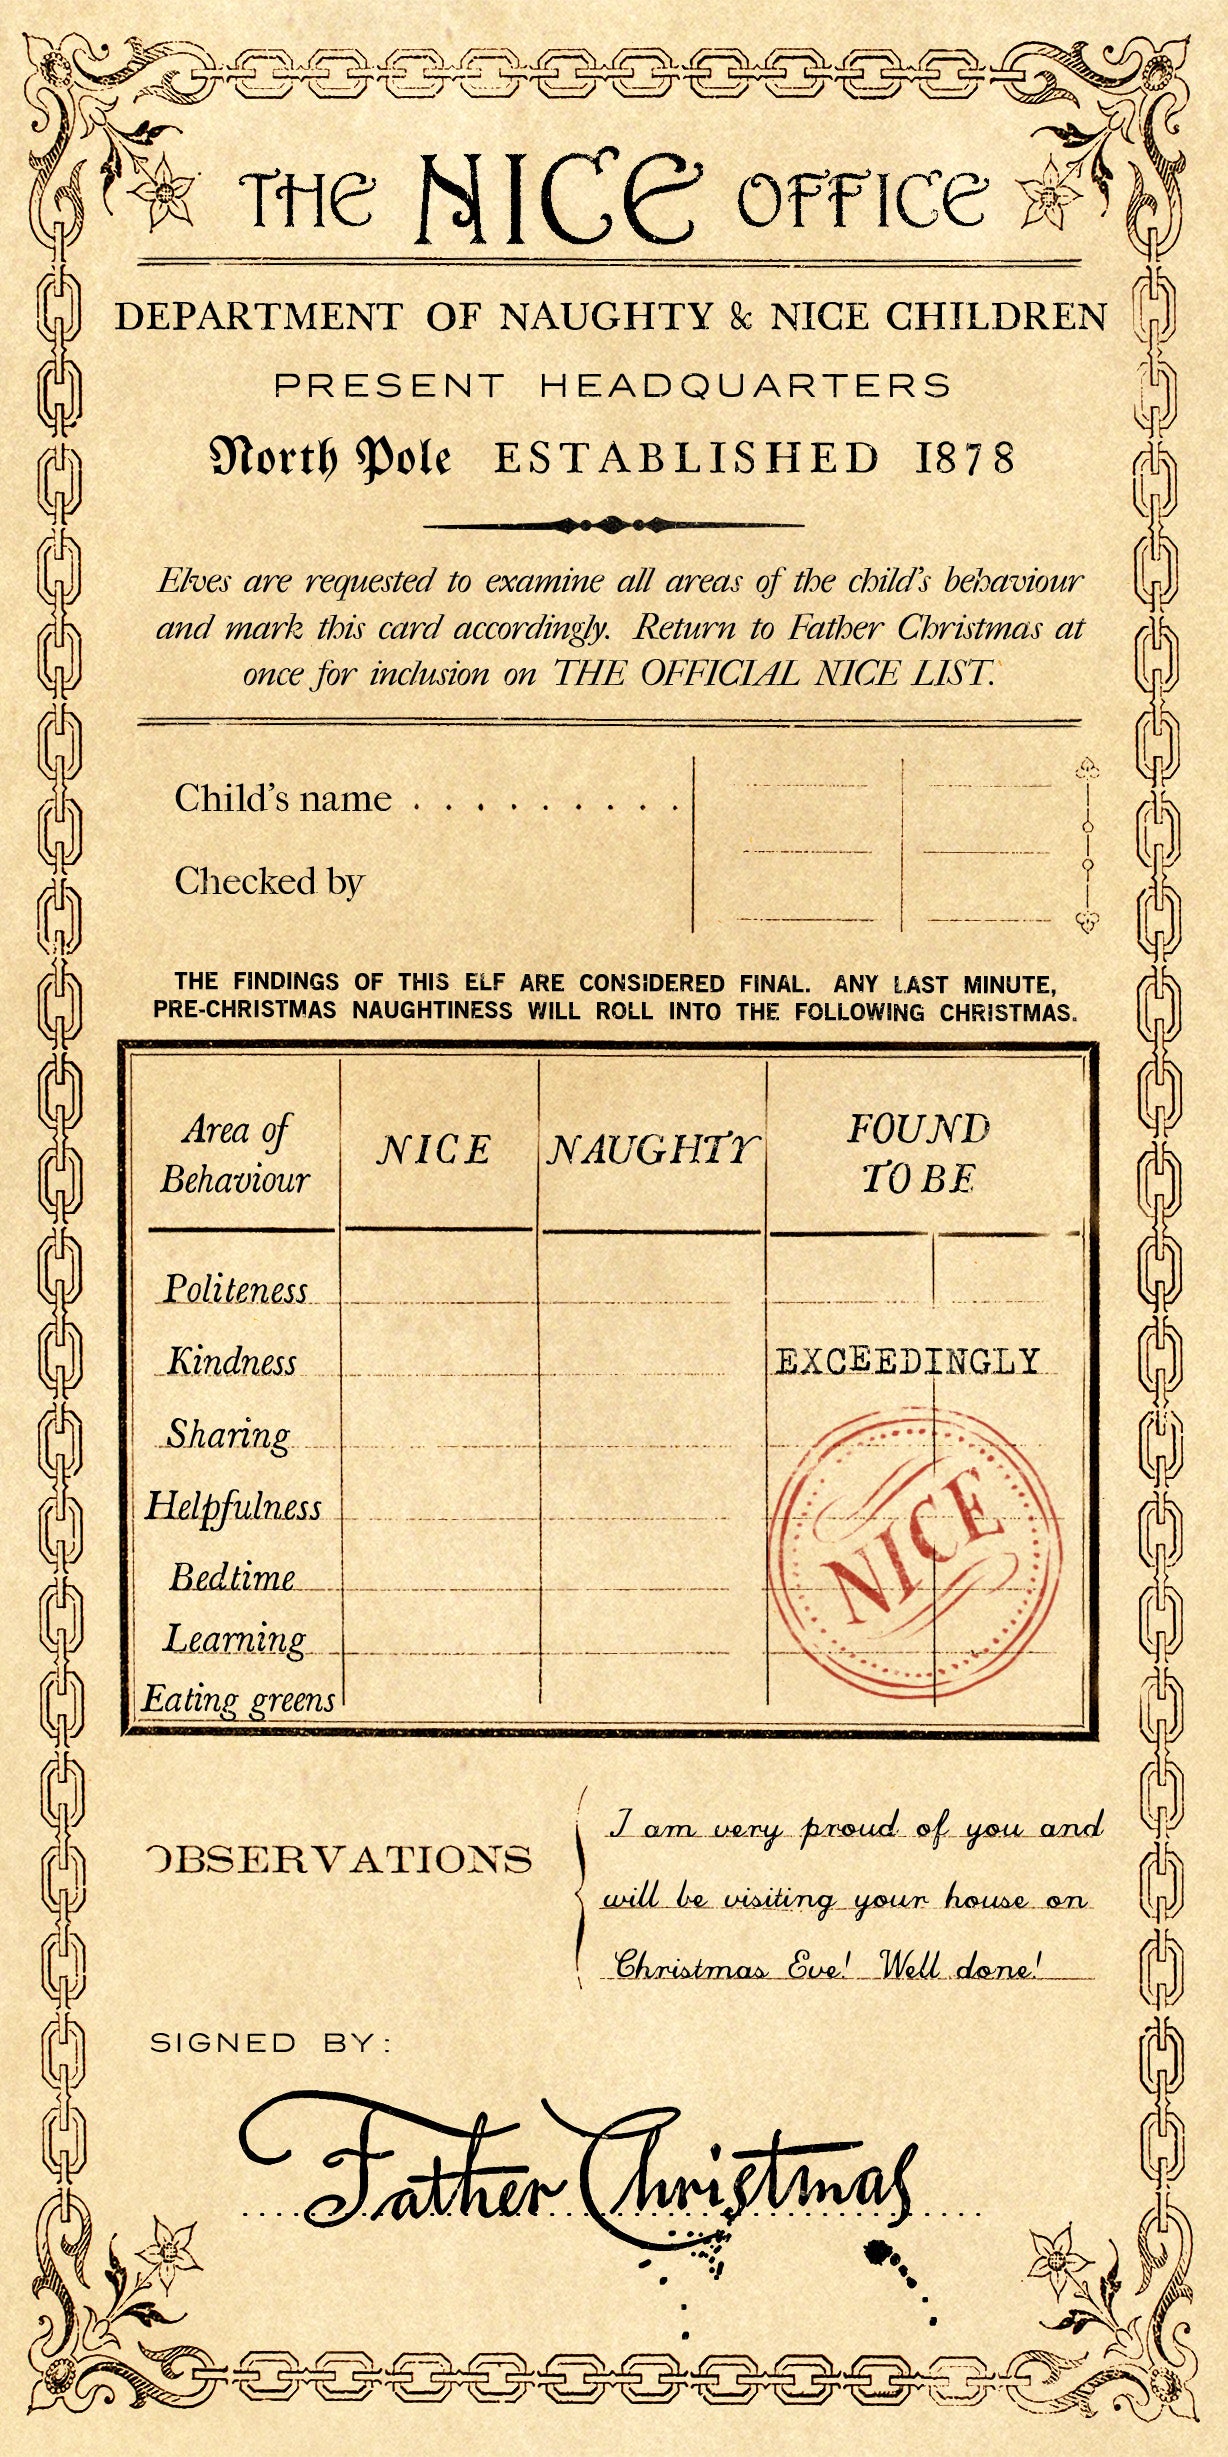 THE NICE OFFICE
DEPARTMENT OF NAUGHTY & NICE CHILDREN
PRESENT HEADQUARTERS
North Pole ESTABLISHED 1878
Elves are requested to examine all areas of the child's behaviour
and mark this card accordingly. Return to Father Christmas at
once for inclusion on THE OFFICIAL NICE LIST.
Child's name . . . . . . . . .
Checked by
THE FINDINGS OF THIS ELF ARE CONSIDERED FINAL. ANY LAST MINUTE,
PRE-CHRISTMAS NAUGHTINESS WILL ROLL INTO THE FOLLOWING CHRISTMAS.
Area of
Behaviour
NICE
NAUGHTY
FOUND
TO BE
Politeness
Kindness
EXCEEDINGLY
Sharing
Helpfulness
NICE
Bedtime
Learning
Eating greens
OBSERVATIONS
I am very proud of you and
will be visiting your house on
Christmas Eve! Well done!
SIGNED BY:
Father Christmas